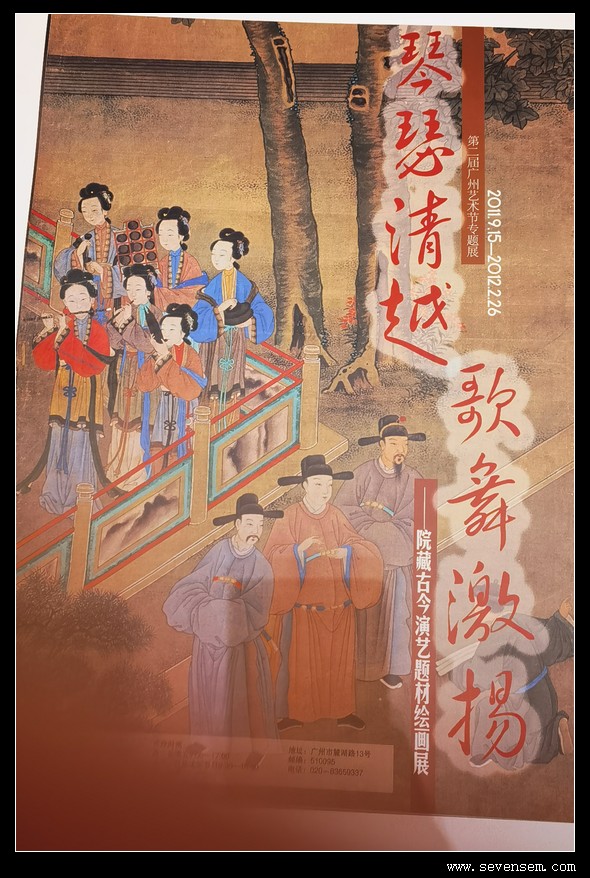 琴瑟清越
歌舞激扬
第二届广州艺术节专题展
2011.9.15—2012.2.26
——院藏古今演艺题材绘画展
地址：广州市麓湖路13号
邮编：510095
电话：(020)-83659337
www.sevensem.com